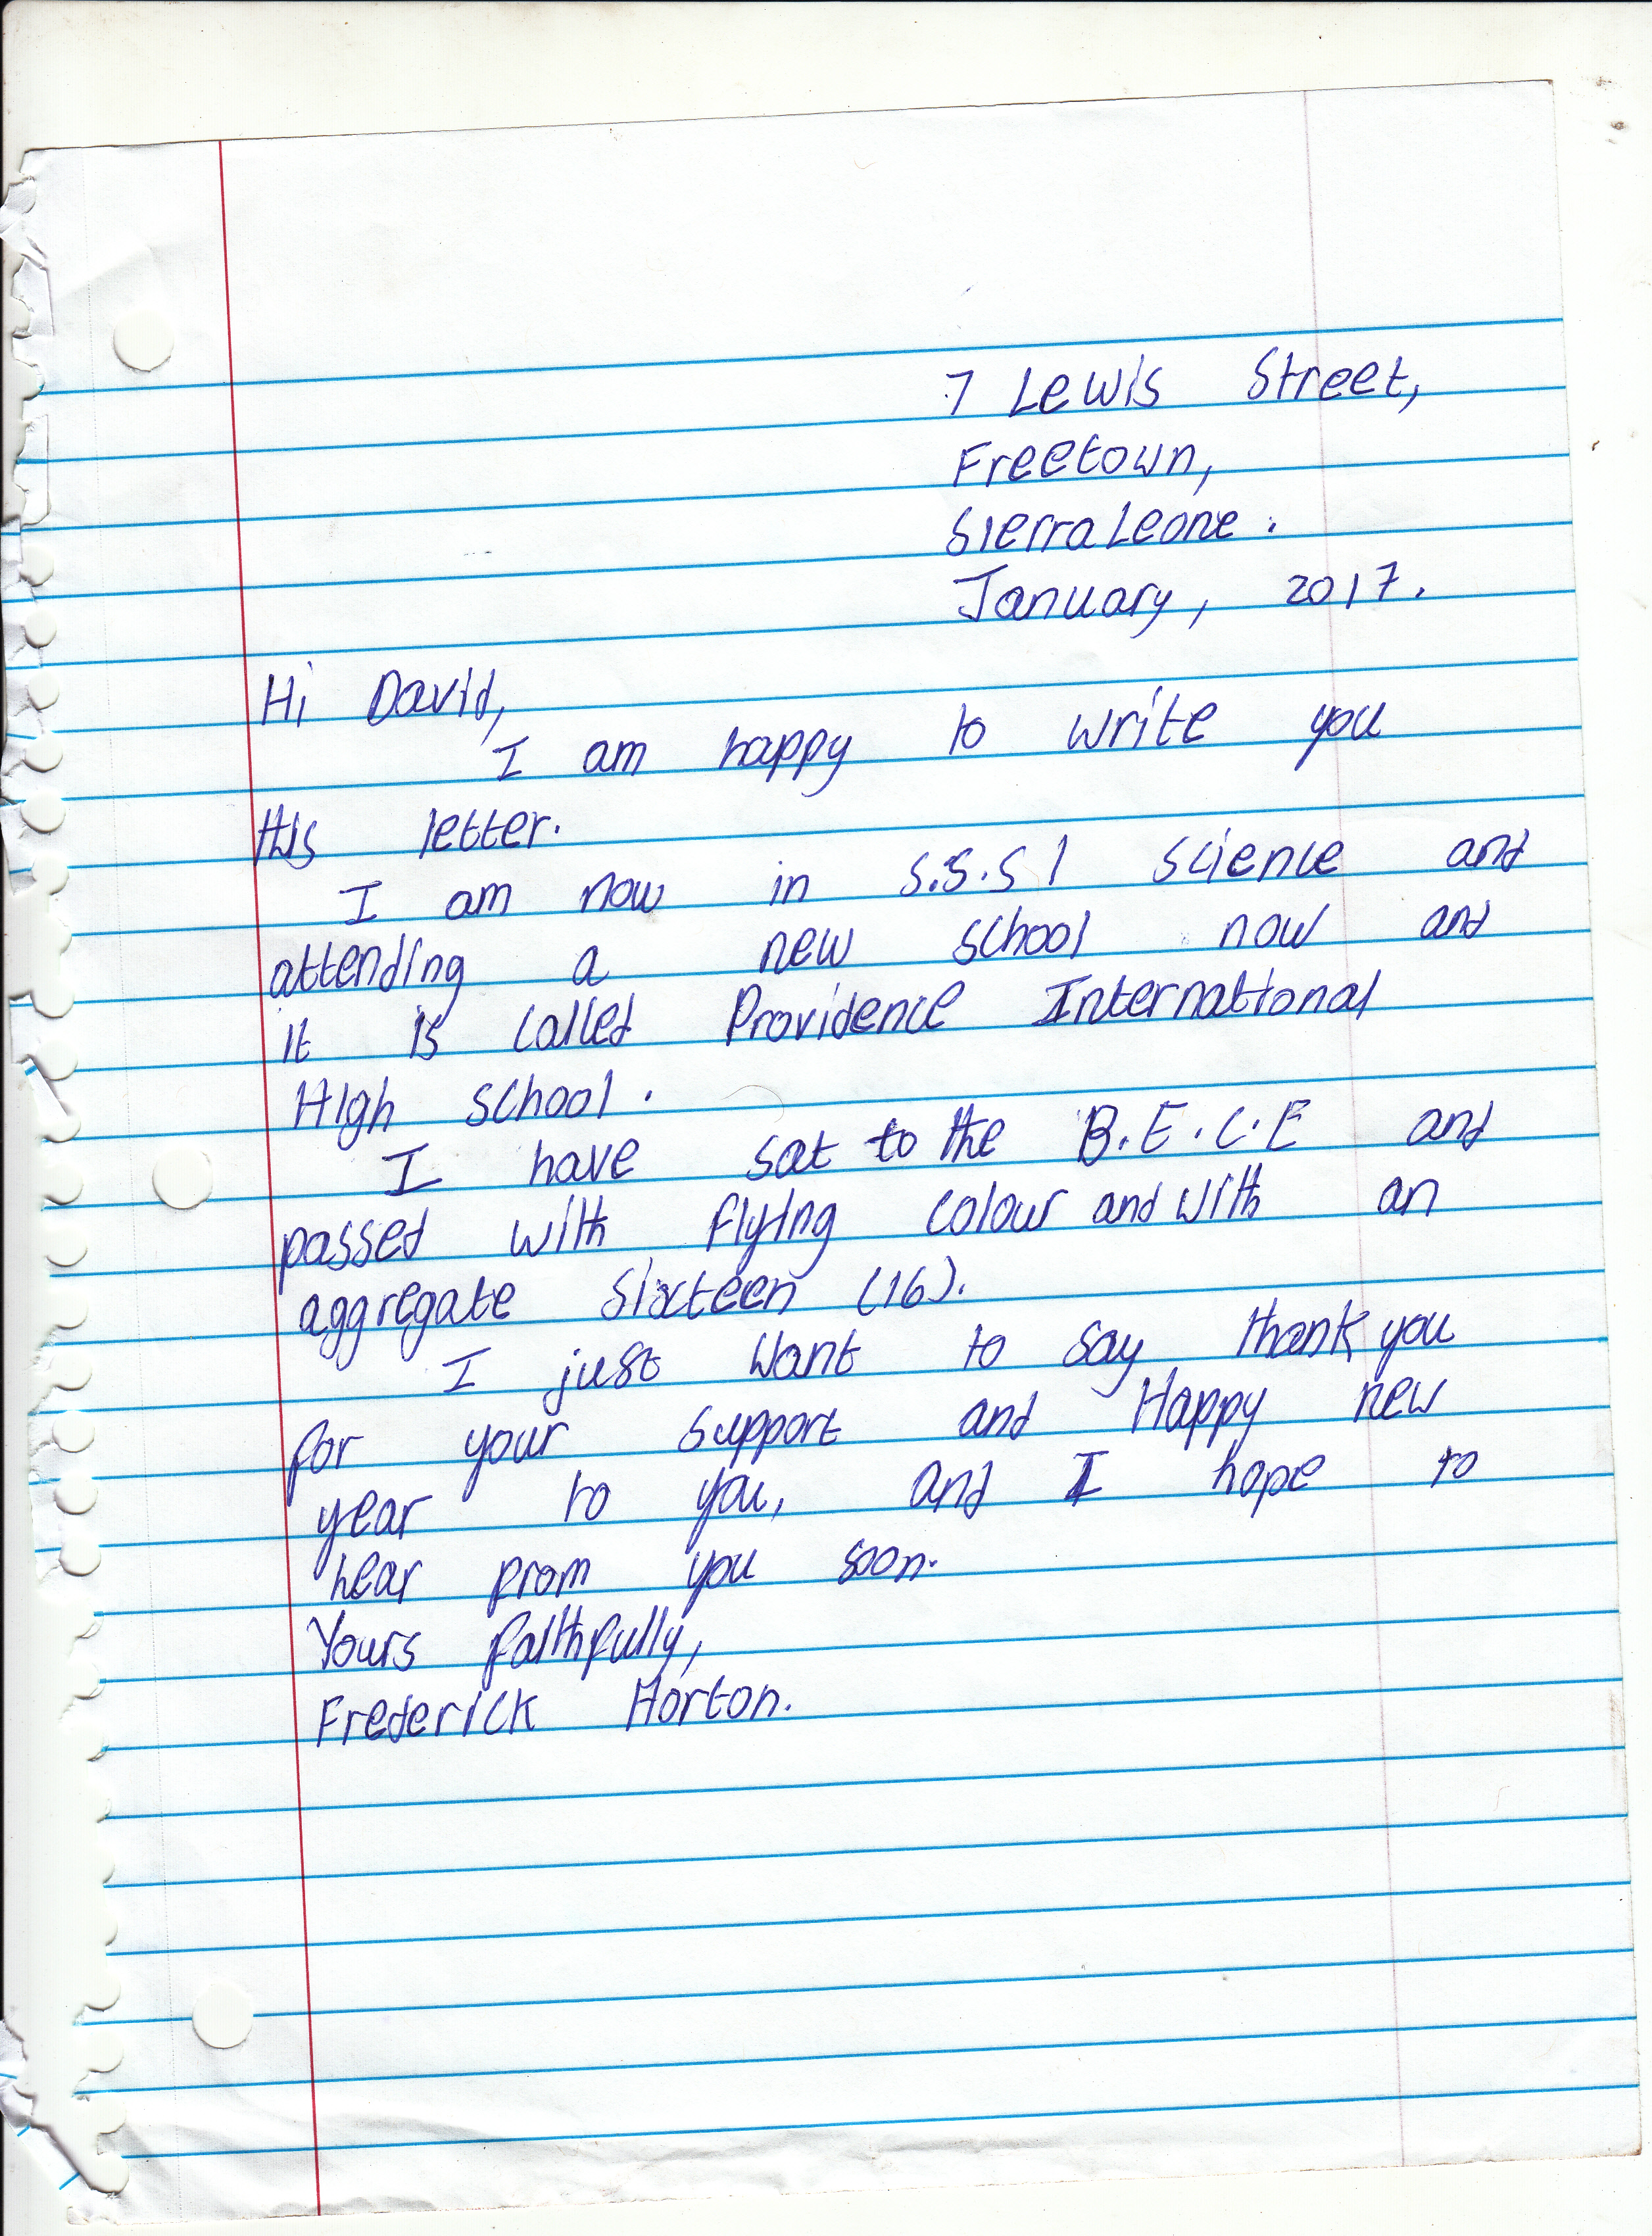 7 Lewis Street,
Freetown,
Sierra Leone.
January, 2017.
Hi David,
I am happy to write you
this letter.
I am now in S.S.S 1 Science and
attending a new school now and
it is called Providence International
High school.
I have sat to the B.E.C.E and
passed with flying colour and with an
aggregate Sixteen (16).
I just want to say thank you
for your support and Happy new
year to you, and I hope to
hear from you soon.
Yours faithfully,
Frederick Horton.